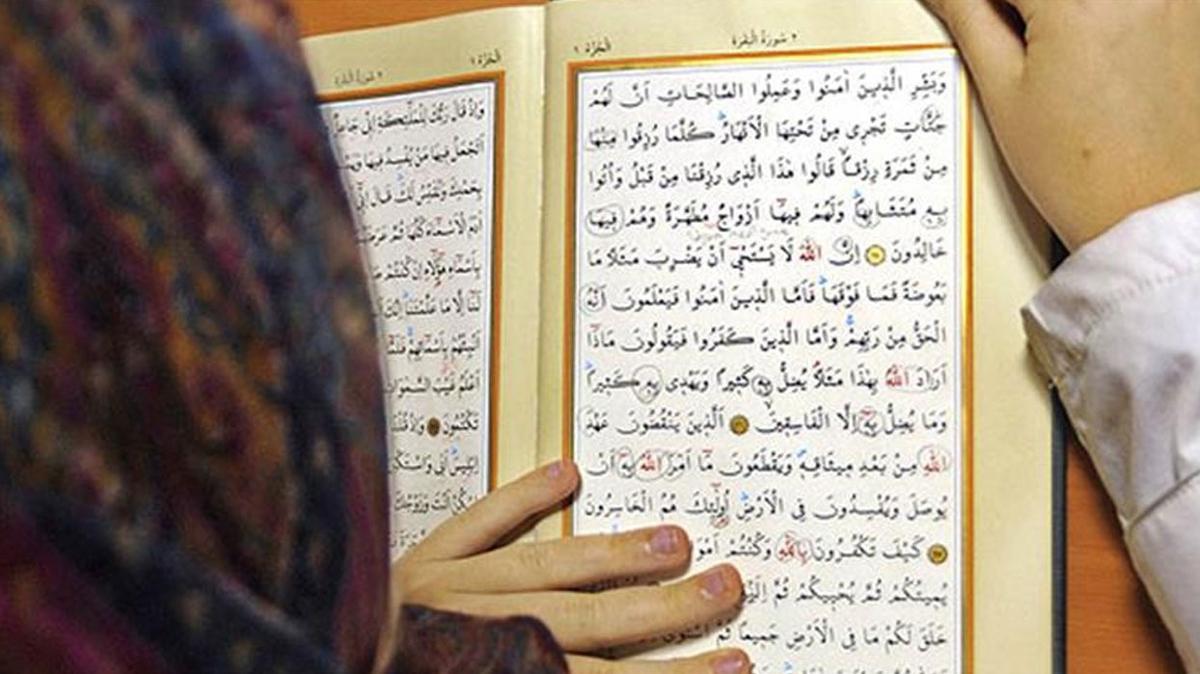 ٢ سُورَةُ الْبَقَرَةِ
اَلْجُزْءُ ١
وَبَشِّرِ الَّذِينَ اٰمَنُوا وَعَمِلُوا الصَّالِحَاتِ اَنَّ لَهُمْ
جَنَّاتٍ تَجْرِى مِنْ تَحْتِهَا الْاَنْهَارُ كُلَّمَا رُزِقُوا مِنْهَا
مِنْ ثَمَرَةٍ رِزْقًا قَالُوا هٰذَا الَّذِى رُزِقْنَا مِنْ قَبْلُ وَاُتُوا
بِهِ مُتَشَابِهًا وَلَهُمْ فِيهَا اَزْوَاجٌ مُطَهَّرَةٌ وَهُمْ فِيهَا
خَالِدُونَ اِنَّ اللّٰهَ لَا يَسْتَحْيِ اَنْ يَضْرِبَ مَثَلًا مَا
بَعُوضَةً فَمَا فَوْقَهَا فَاَمَّا الَّذِينَ اٰمَنُوا فَيَعْلَمُونَ اَنَّهُ
الْحَقُّ مِنْ رَبِّهِمْ وَاَمَّا الَّذِينَ كَفَرُوا فَيَقُولُونَ مَاذَا
اَرَادَ اللّٰهُ بِهٰذَا مَثَلًا يُضِلُّ بِهِ كَثِيرًا وَيَهْدِى بِهِ كَثِيرًا
وَمَا يُضِلُّ بِهِ اِلَّا الْفَاسِقِينَ اَلَّذِينَ يَنْقُضُونَ عَهْدَ
اللّٰهِ مِنْ بَعْدِ مِيثَاقِهِ وَيَقْطَعُونَ مَا اَمَرَ اللّٰهُ بِهِ اَنْ
يُوصَلَ وَيُفْسِدُونَ فِى الْاَرْضِ اُولٰئِكَ هُمُ الْخَاسِرُونَ
كَيْفَ تَكْفُرُونَ بِاللّٰهِ وَكُنْتُمْ
يُمِيتُكُمْ ثُمَّ يُحْيِيكُمْ ثُمَّ
خَلَقَ لَكُمْ مَا فِى الْاَرْضِ جَمِيعًا ثُمَّ
اَلْجُزْءُ ١
٢ سُورَةُ الْبَقَرَةِ
وَاِذْ قَالَ رَبُّكَ لِلْمَلٰئِكَةِ اِنِّى
اَتَجْعَلُ فِيهَا مَنْ يُفْسِدُ فِيهَا
بِحَمْدِكَ وَنُقَدِّسُ لَكَ قَالَ اِنِّى
اٰدَمَ الْاَسْمَاءَ كُلَّهَا ثُمَّ
بِاَسْمَاءِ هٰؤُلَاءِ اِنْ كُنْتُمْ
لَنَا اِلَّا مَا عَلَّمْتَنَا اِنَّكَ
اَنْبِئْهُمْ بِاَسْمَائِهِمْ
اَعْلَمُ غَيْبَ السَّمٰوَاتِ
تَكْتُمُونَ وَاِذْ قُلْنَا
اِبْلِيسَ اَبٰى وَاسْتَكْبَرَ
اَنْتَ وَزَوْجُكَ